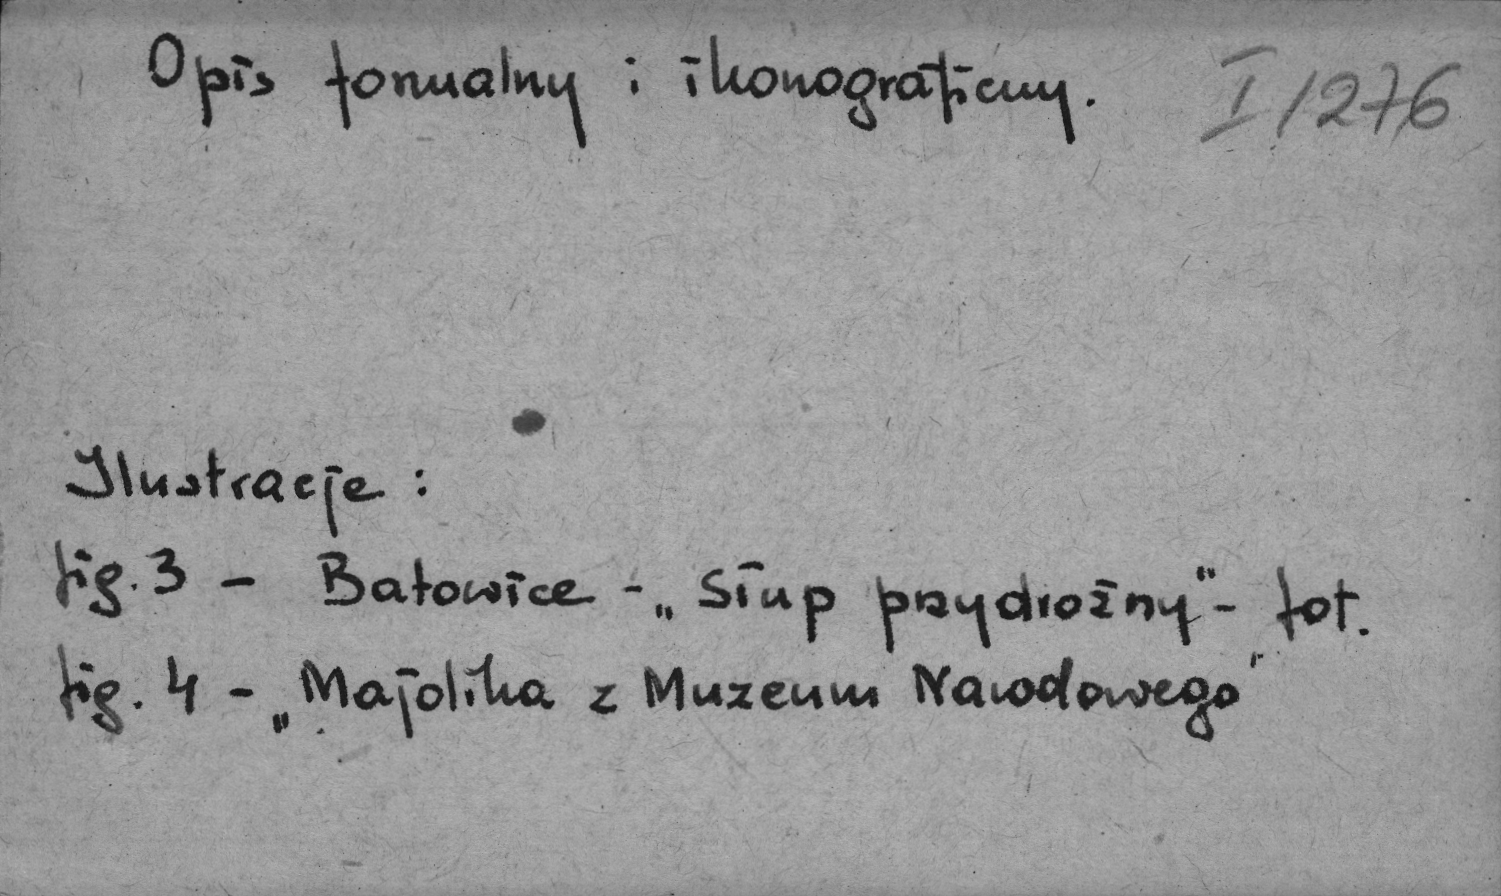 Opis formalny i ikonograficzny. I/276
Ilustracje :
fig. 3 - Batowice - „Słup przydrożny" - fot.
fig. 4 - „Majolika z Muzeum Narodowego"